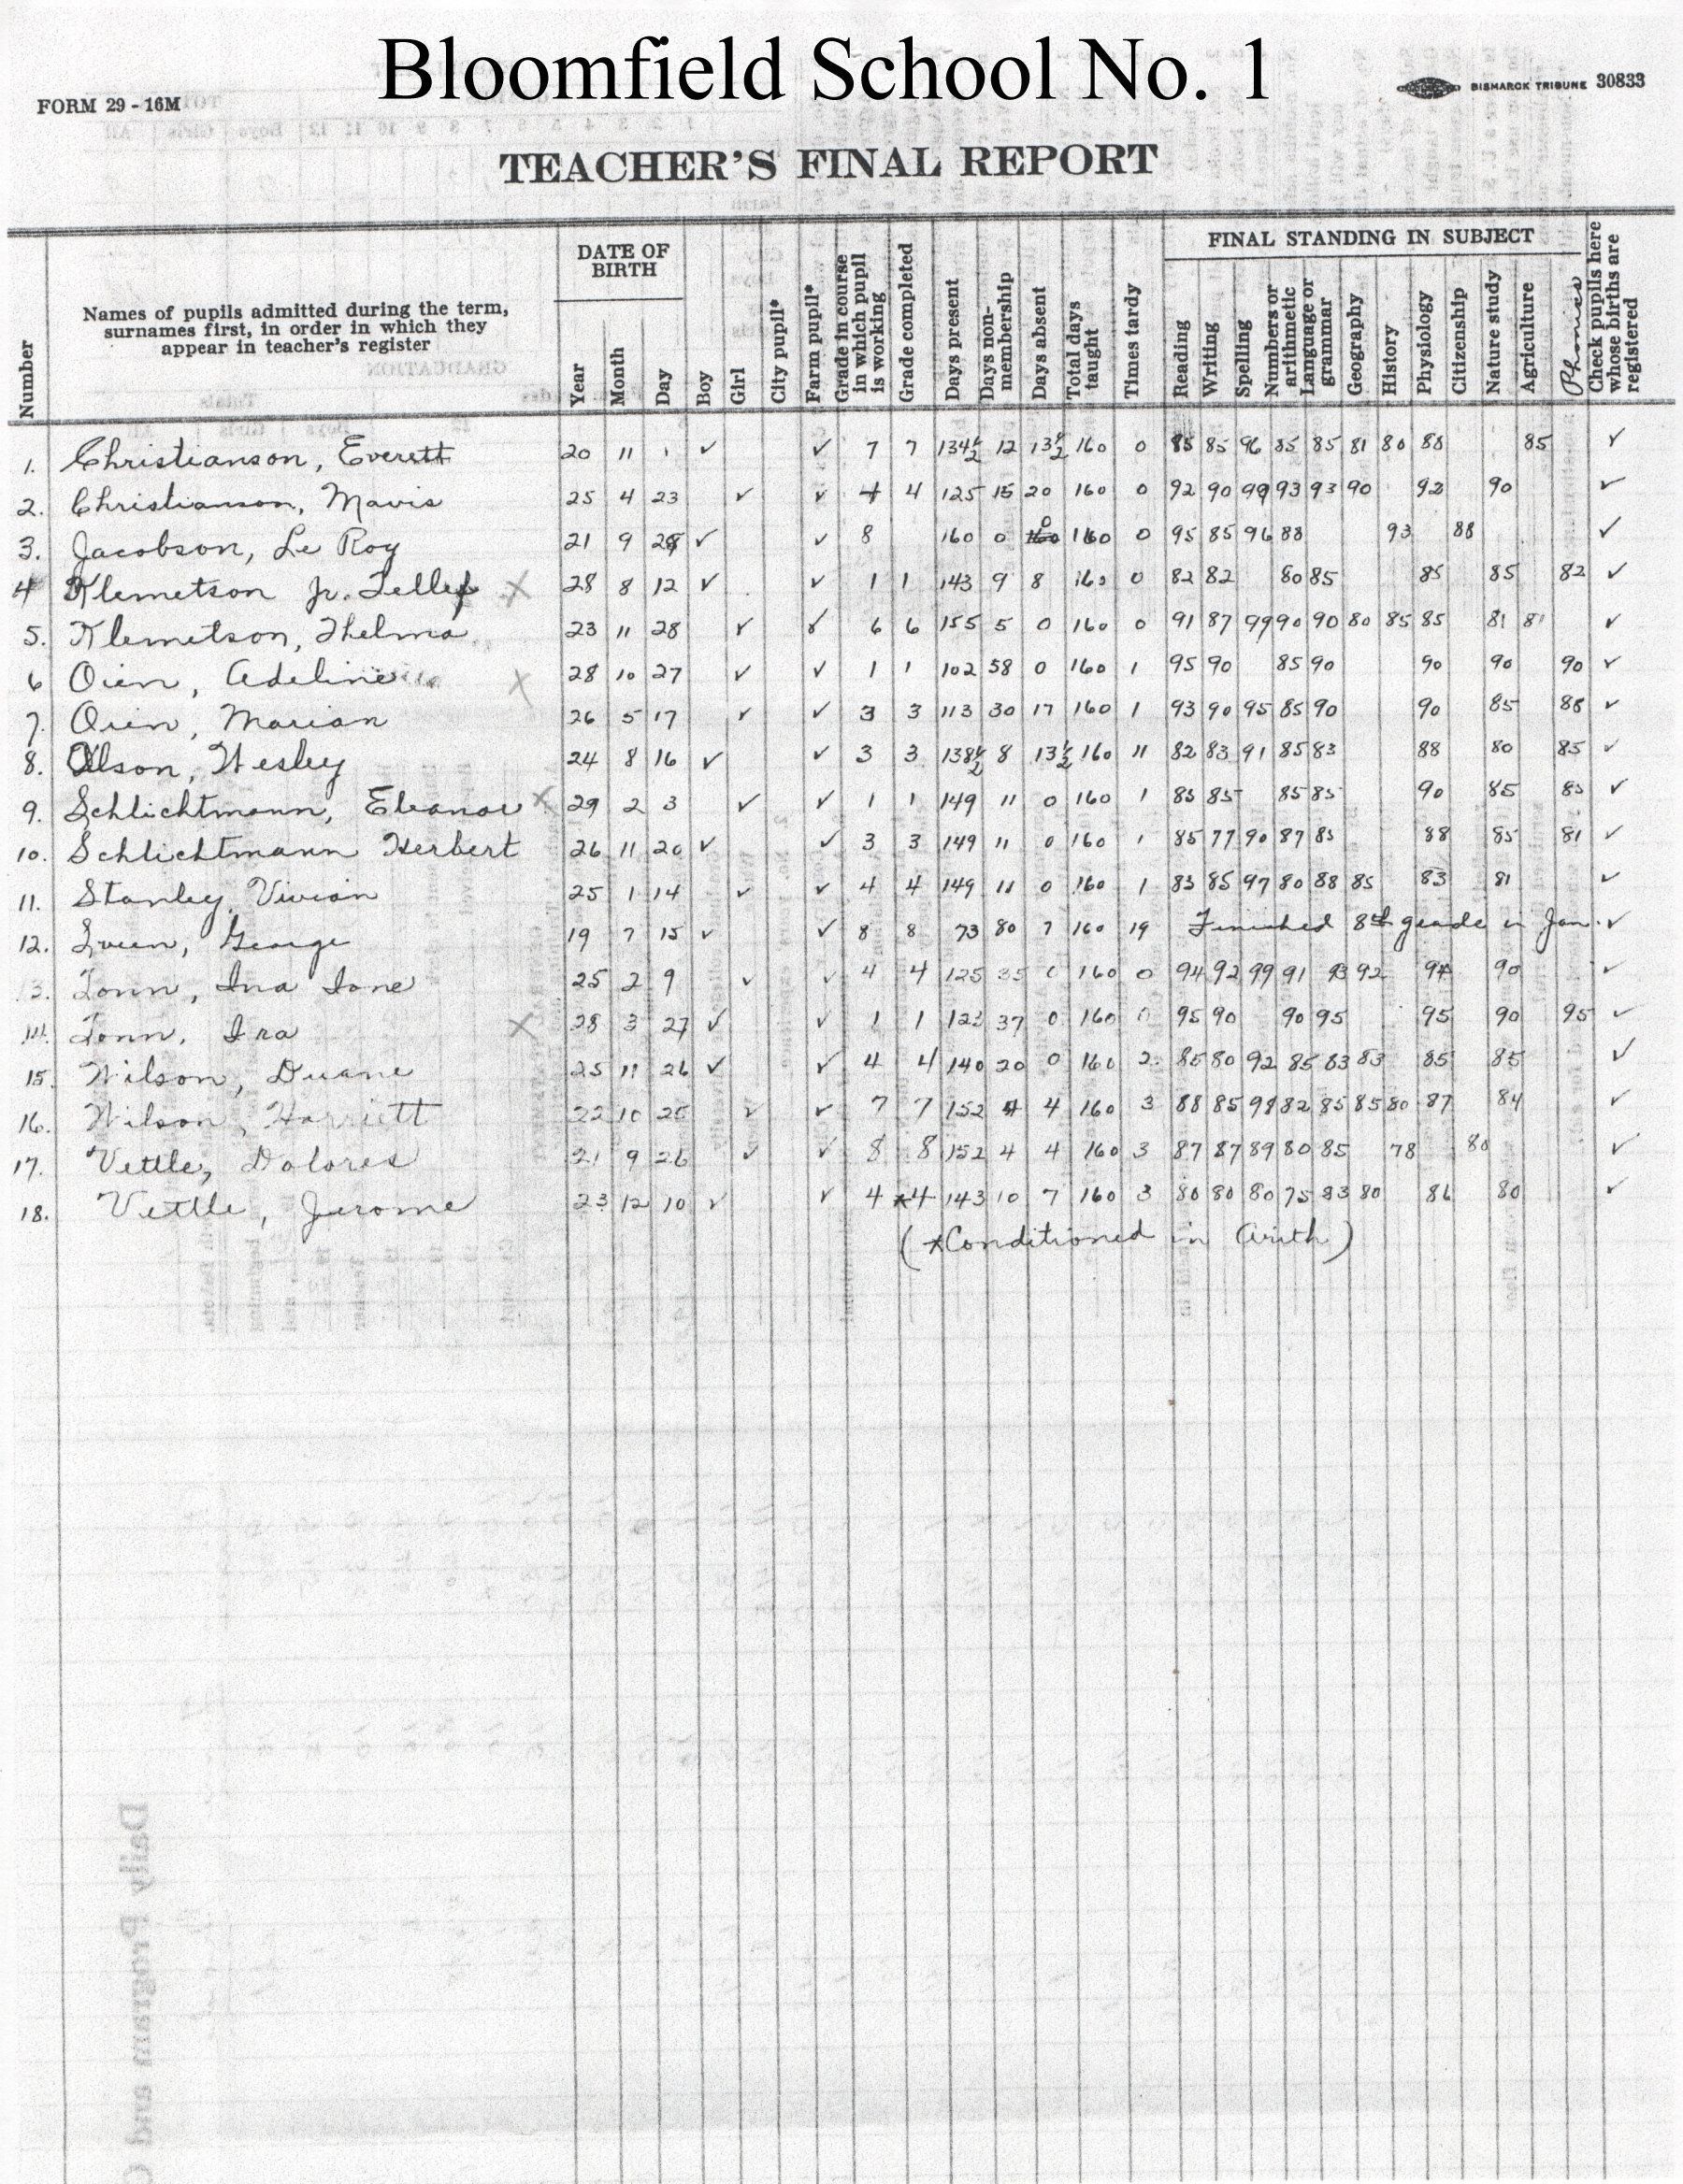 Bloomfield School No. 1
FORM 29 - 16M
BISMARCK TRIBUNE 30833
TEACHER'S FINAL REPORT
Number
Names of pupils admitted during the term, surnames first, in order in which they appear in teacher's register
DATE OF BIRTH
Year Month Day Boy Girl City pupil* Farm pupil* Grade in course in which pupil is working Grade completed Days present Days non-membership Days absent Total days taught Times tardy
FINAL STANDING IN SUBJECT
Reading Writing Spelling Numbers or arithmetic Language or grammar Geography History Physiology Citizenship Nature study Agriculture Phonics
Check pupils here whose births are registered
1. Christianson, Everett 20 11 1 ✓ ✓ 7 7 134½ 12 13½ 160 0 85 85 96 85 85 81 80 88 85 ✓
2. Christianson, Mavis 25 4 23 ✓ ✓ 4 4 125 15 20 160 0 92 90 99 93 93 90 92 90 ✓
3. Jacobson, Le Roy 21 9 28 ✓ ✓ 8 160 0 0 160 0 95 85 96 88 93 88 ✓
4 Klemetson Jr. Tellef X 28 8 12 ✓ ✓ 1 1 143 9 8 160 0 82 82 80 85 85 85 82 ✓
5. Klemetson, Thelma 23 11 28 ✓ ✓ 6 6 155 5 0 160 0 91 87 99 90 90 80 85 85 81 81 ✓
6 Oien, Adeline X 28 10 27 ✓ ✓ 1 1 102 58 0 160 1 95 90 85 90 90 90 90 ✓
7. Oien, Marian 26 5 17 ✓ ✓ 3 3 113 30 17 160 1 93 90 95 85 90 90 85 88 ✓
8. Olson, Wesley 24 8 16 ✓ ✓ 3 3 138½ 8 13½ 160 11 82 83 91 85 83 88 80 85 ✓
9. Schlichtmann, Eleanor X 29 2 3 ✓ ✓ 1 1 149 11 0 160 1 85 85 85 85 90 85 85 ✓
10. Schlichtmann Herbert 26 11 20 ✓ ✓ 3 3 149 11 0 160 1 85 77 90 87 85 88 85 81 ✓
11. Stanley, Vivian 25 1 14 ✓ ✓ 4 4 149 11 0 160 1 83 85 97 80 88 85 83 81 ✓
12. Sveen, George 19 7 15 ✓ ✓ 8 8 73 80 7 160 19 Finished 8th grade in Jan. ✓
13. Tonn, Ina Ione 25 2 9 ✓ ✓ 4 4 125 35 0 160 0 94 92 99 91 93 92 94 90 ✓
14. Tonn, Ira X 28 3 27 ✓ ✓ 1 1 123 37 0 160 0 95 90 90 95 95 90 95 ✓
15. Wilson, Duane 25 11 26 ✓ ✓ 4 4 140 20 0 160 2 85 80 92 85 83 83 85 85 ✓
16. Wilson, Harriett 22 10 25 ✓ ✓ 7 7 152 4 4 160 3 88 85 98 82 85 85 80 87 84 ✓
17. Vettle, Dolores 21 9 26 ✓ ✓ 8 8 152 4 4 160 3 87 87 89 80 85 78 80 ✓
18. Vettle, Jerome 23 12 10 ✓ ✓ 4 *4 143 10 7 160 3 80 80 80 75 83 80 86 80 ✓
(*Conditioned in Arith.)
Daily Program and